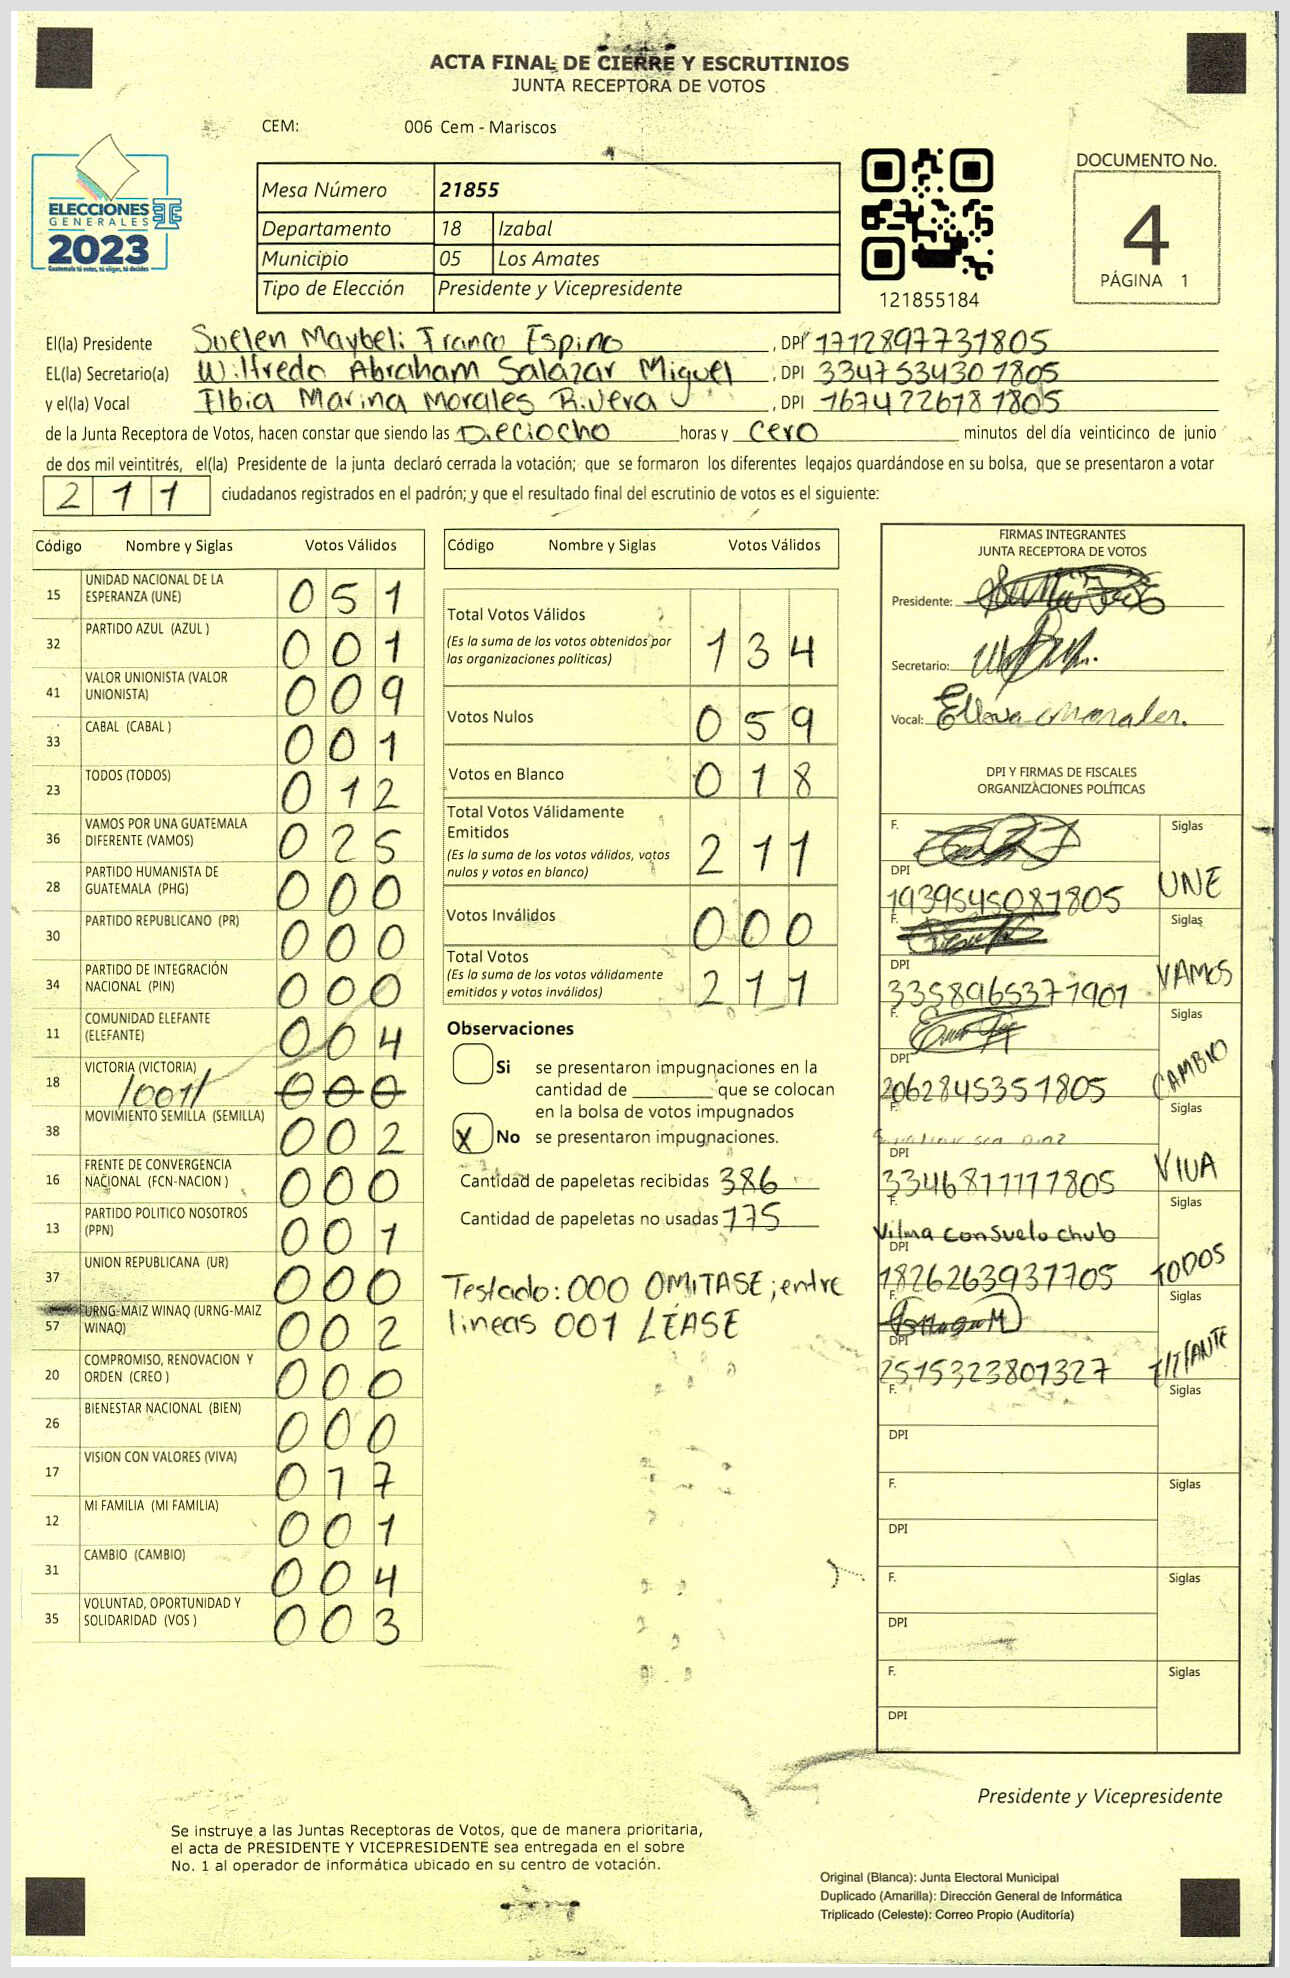 ACTA FINAL DE CIERRE Y ESCRUTINIOS
JUNTA RECEPTORA DE VOTOS
CEM: 006 Cem - Mariscos
ELECCIONES
GENERALES
2023
Guatemala tú votas, tú eliges, tú decides
Mesa Número 21855
Departamento 18 Izabal
Municipio 05 Los Amates
Tipo de Elección Presidente y Vicepresidente
121855184
DOCUMENTO No.
4
PÁGINA 1
El(la) Presidente Suelen Maybeli Franco Espino, DPI 1712897731805
EL(la) Secretario(a) Wilfredo Abraham Salazar Miguel, DPI 3347534301805
y el(la) Vocal Elbia Marina Morales Rivera, DPI 1674226181805
de la Junta Receptora de Votos, hacen constar que siendo las Dieciocho horas y cero minutos del día veinticinco de junio
de dos mil veintitrés, el(la) Presidente de la junta declaró cerrada la votación; que se formaron los diferentes legajos guardándose en su bolsa, que se presentaron a votar
211 ciudadanos registrados en el padrón; y que el resultado final del escrutinio de votos es el siguiente:
Código Nombre y Siglas Votos Válidos
15 UNIDAD NACIONAL DE LA ESPERANZA (UNE) 051
32 PARTIDO AZUL (AZUL ) 001
41 VALOR UNIONISTA (VALOR UNIONISTA) 009
33 CABAL (CABAL ) 001
23 TODOS (TODOS) 012
36 VAMOS POR UNA GUATEMALA DIFERENTE (VAMOS) 025
28 PARTIDO HUMANISTA DE GUATEMALA (PHG) 000
30 PARTIDO REPUBLICANO (PR) 000
34 PARTIDO DE INTEGRACIÓN NACIONAL (PIN) 000
11 COMUNIDAD ELEFANTE (ELEFANTE) 004
18 VICTORIA (VICTORIA) /001/ 000
38 MOVIMIENTO SEMILLA (SEMILLA) 002
16 FRENTE DE CONVERGENCIA NACIONAL (FCN-NACION ) 000
13 PARTIDO POLITICO NOSOTROS (PPN) 001
37 UNION REPUBLICANA (UR) 000
57 URNG-MAIZ WINAQ (URNG-MAIZ WINAQ) 002
20 COMPROMISO, RENOVACION Y ORDEN (CREO ) 000
26 BIENESTAR NACIONAL (BIEN) 000
17 VISION CON VALORES (VIVA) 017
12 MI FAMILIA (MI FAMILIA) 001
31 CAMBIO (CAMBIO) 004
35 VOLUNTAD, OPORTUNIDAD Y SOLIDARIDAD (VOS ) 003
Código Nombre y Siglas Votos Válidos
Total Votos Válidos 134
(Es la suma de los votos obtenidos por
las organizaciones políticas)
Votos Nulos 059
Votos en Blanco 018
Total Votos Válidamente
Emitidos 211
(Es la suma de los votos válidos, votos
nulos y votos en blanco)
Votos Inválidos 000
Total Votos 211
(Es la suma de los votos válidamente
emitidos y votos inválidos)
Observaciones
Si se presentaron impugnaciones en la
cantidad de ________ que se colocan
en la bolsa de votos impugnados
X No se presentaron impugnaciones.
Cantidad de papeletas recibidas 386
Cantidad de papeletas no usadas 175
Testado: 000 OMITASE; entre
lineas 001 LÉASE
FIRMAS INTEGRANTES
JUNTA RECEPTORA DE VOTOS
Presidente:
Secretario:
Vocal:
DPI Y FIRMAS DE FISCALES
ORGANIZACIONES POLÍTICAS
F. Siglas
DPI 1939545081805 UNE
F. Siglas
DPI 3358965371901 VAMOS
F. Siglas
DPI 2062845351805 CAMBIO
F. Siglas
DPI 3346811117805 VIVA
F. Vilma Consuelo chub Siglas
DPI 1826263937705 TODOS
F. Siglas
DPI 2515323801327
F. Siglas
DPI
F. Siglas
DPI
F. Siglas
DPI
F. Siglas
DPI
Presidente y Vicepresidente
Se instruye a las Juntas Receptoras de Votos, que de manera prioritaria,
el acta de PRESIDENTE Y VICEPRESIDENTE sea entregada en el sobre
No. 1 al operador de informática ubicado en su centro de votación.
Original (Blanca): Junta Electoral Municipal
Duplicado (Amarilla): Dirección General de Informática
Triplicado (Celeste): Correo Propio (Auditoría)